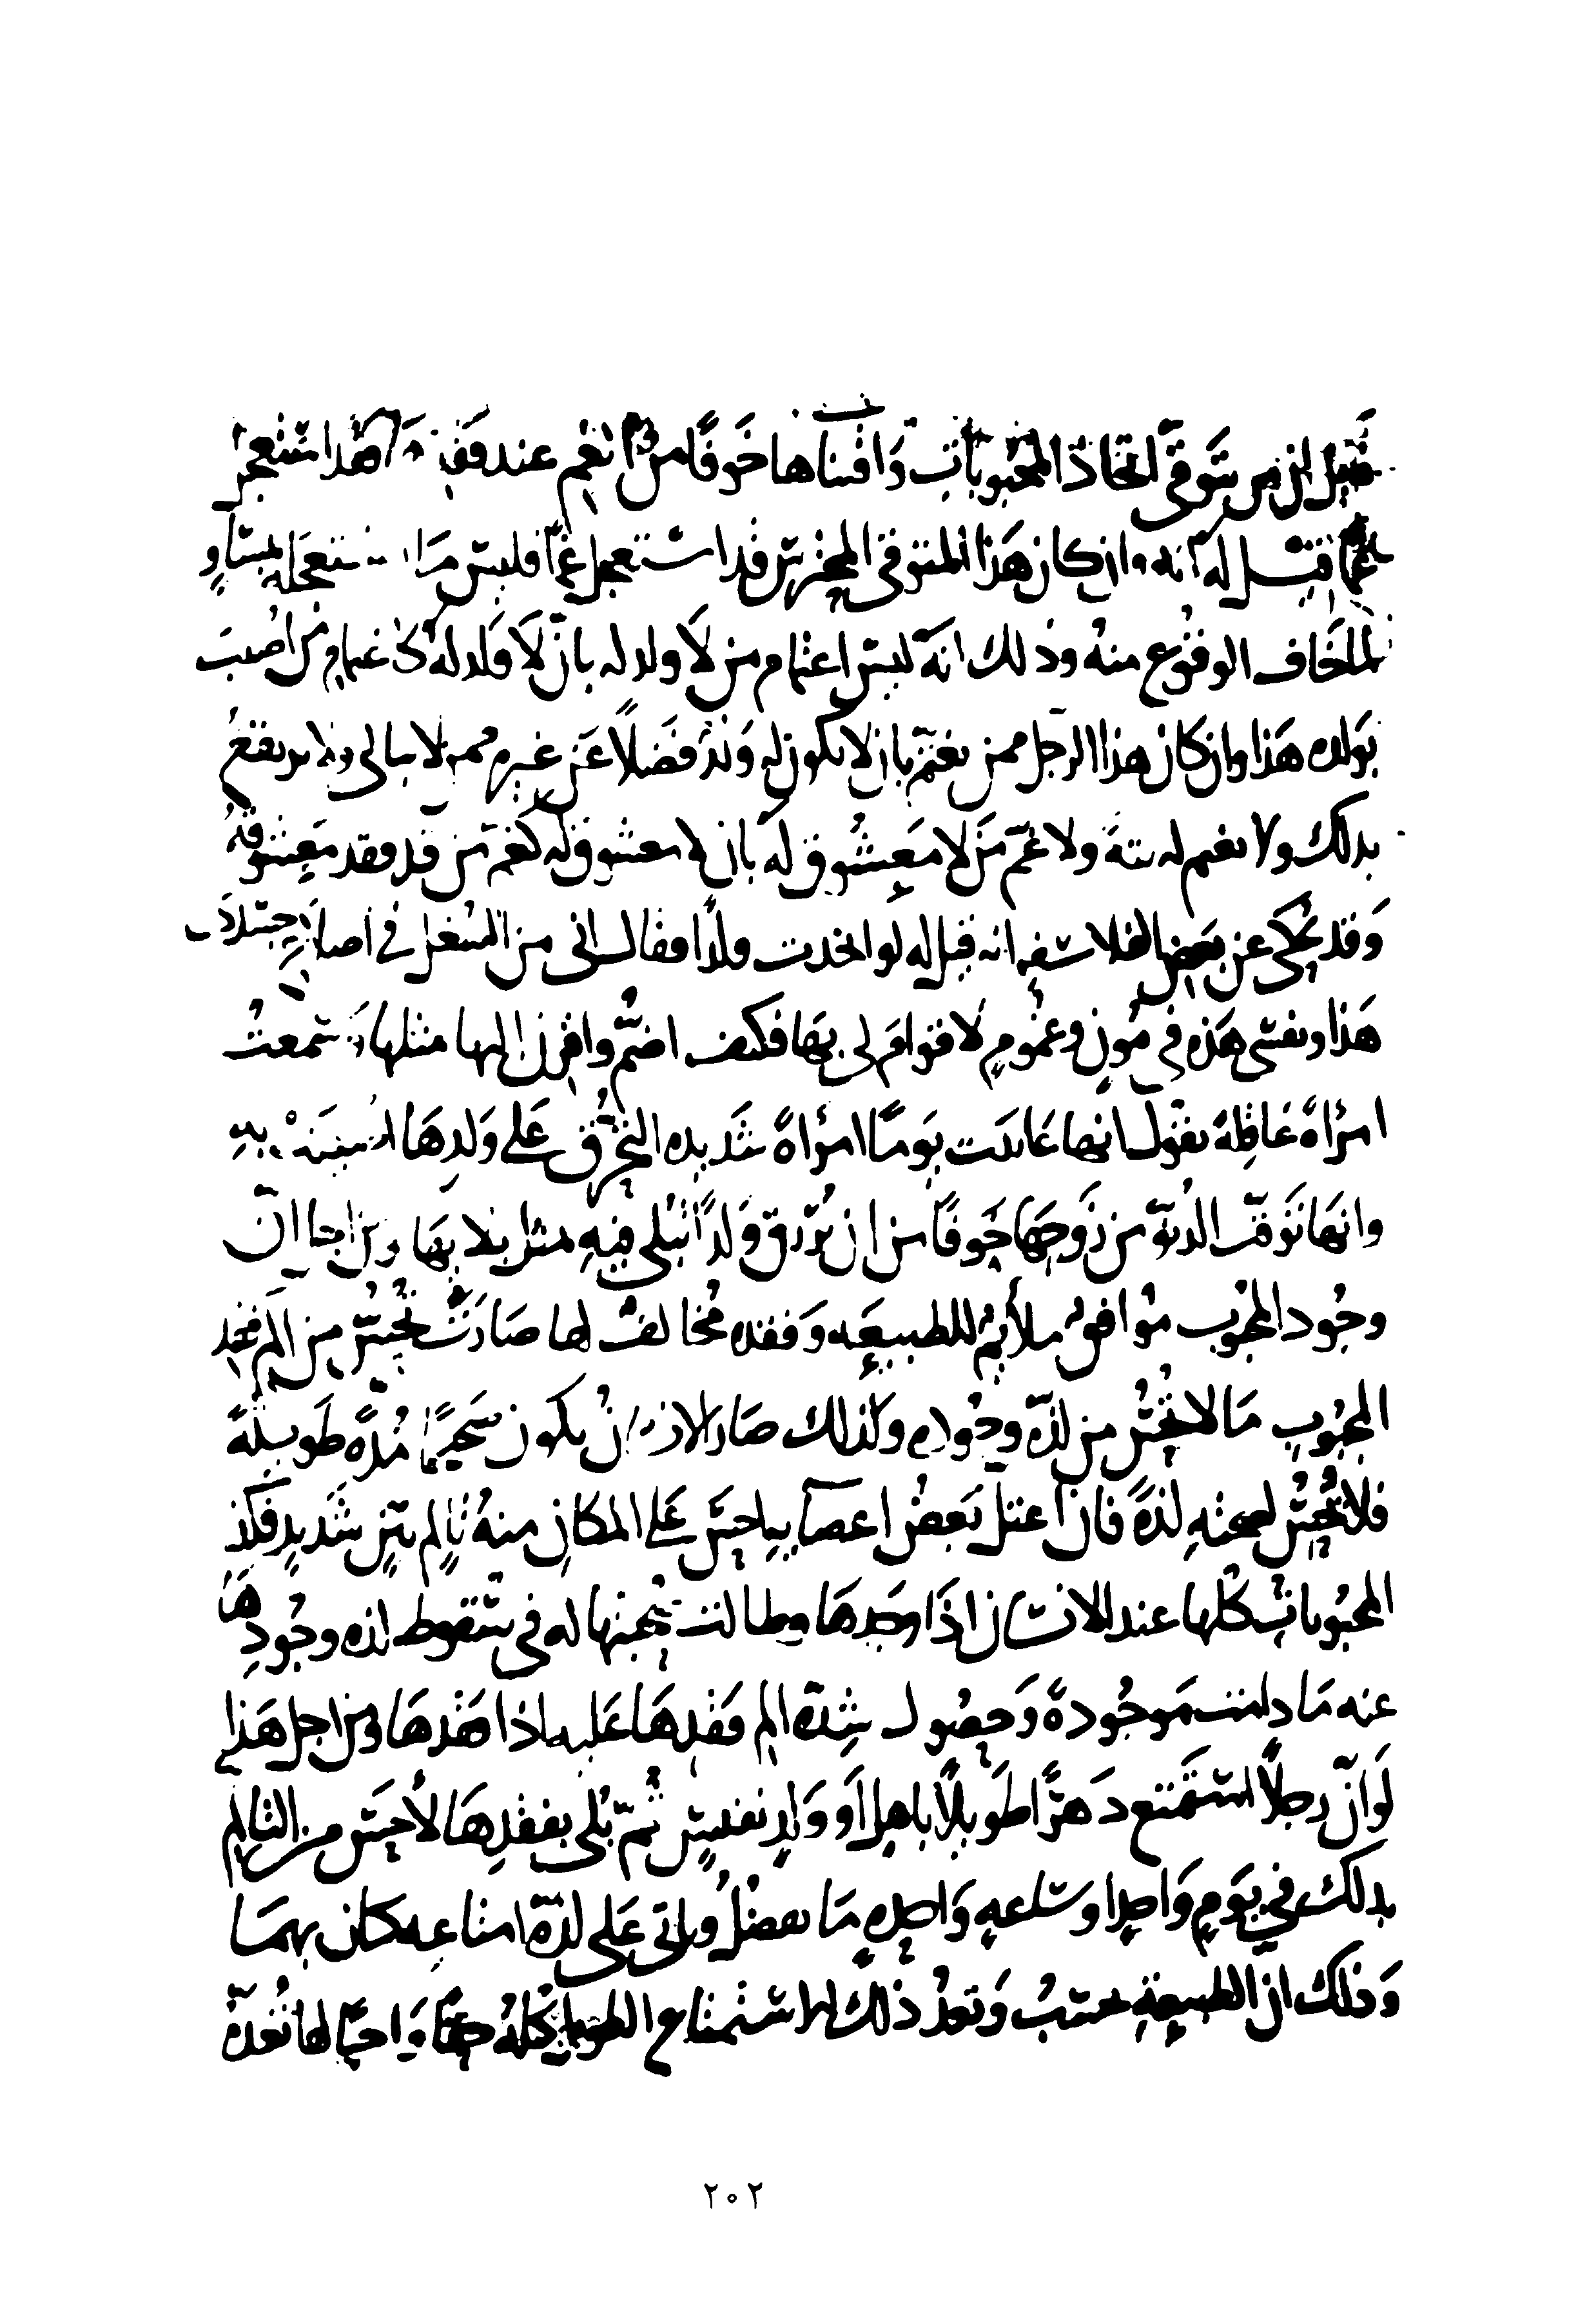 قيل ان من توقى اتخاذ المحبوبات واقتناها خوفا من الغم عند فقدها فقد استعجل
غما قيل له انه وان كان هذا المتوقي المحترس قد استعجل غما فليس ما استعجله بمساو
لما خاف الوقوع منه وذلك انه ليس اغتمام من لا ولد له بان لا ولد له كاغتمام من اصيب
بولده هذا وان كان هذا الرجل ممن يغتم بان لا يكون له ولد فضلا عن غيره ممن لا يبالي
بذلك ولا يغتم له بتة ولا غم من لا معشوق له بان لا معشوق له كغم من قد فقد معشوقه
وقد يحكى عن بعض الفلاسفه انه قيل له لو اتخذت ولدا فقال اني من الشغل في اصلاح جسدي
هذا ونفسي هذه في مؤن وغموم لا قوام لي بها فكيف اضم واقرن اليها مثلها وسمعت
امرأة عاقلة تقول انها عاينت يوما امرأة شديده التحرق على ولدها اصيبت به
وانها توقت الدنو من زوجها خوفا من ان ترزق ولدا تبلى فيه مثل بلايها ومن اجل ان
وجود المحبوب موافق ملايم للطبيعه وفقده مخالف لها صارت تحس من الم فقد
المحبوب ما لا تحس من لذة وجوده ولذلك صار الانسان يكون صحيحا مدة طويلة
فلا يحس لصحته لذة فان اعتل بعض اعضايه احس على المكان منه بالم شديد فكذ
المحبوبات كلها عند الانسان اذا وجدها وطالت صحبتها له في سقوط لذه وجودها
عنه ما دامت موجودة وحصول شدة الم فقدها عليه اذا فقدها ومن اجل هذا
لو ان رجلا استمتع دهرا طويلا باهل او ولد نفيس ثم بلي بفقدها لاحس من التالم
بذلك في يوم واحد او ساعه واحده ما يفضل وياتي على لذة امتاعه كان بهما
وذلك ان الطبيعة تحسب وتعد ذلك الاستمتاع الطويل كله حقا واجبا لها تعده
٢٠٢